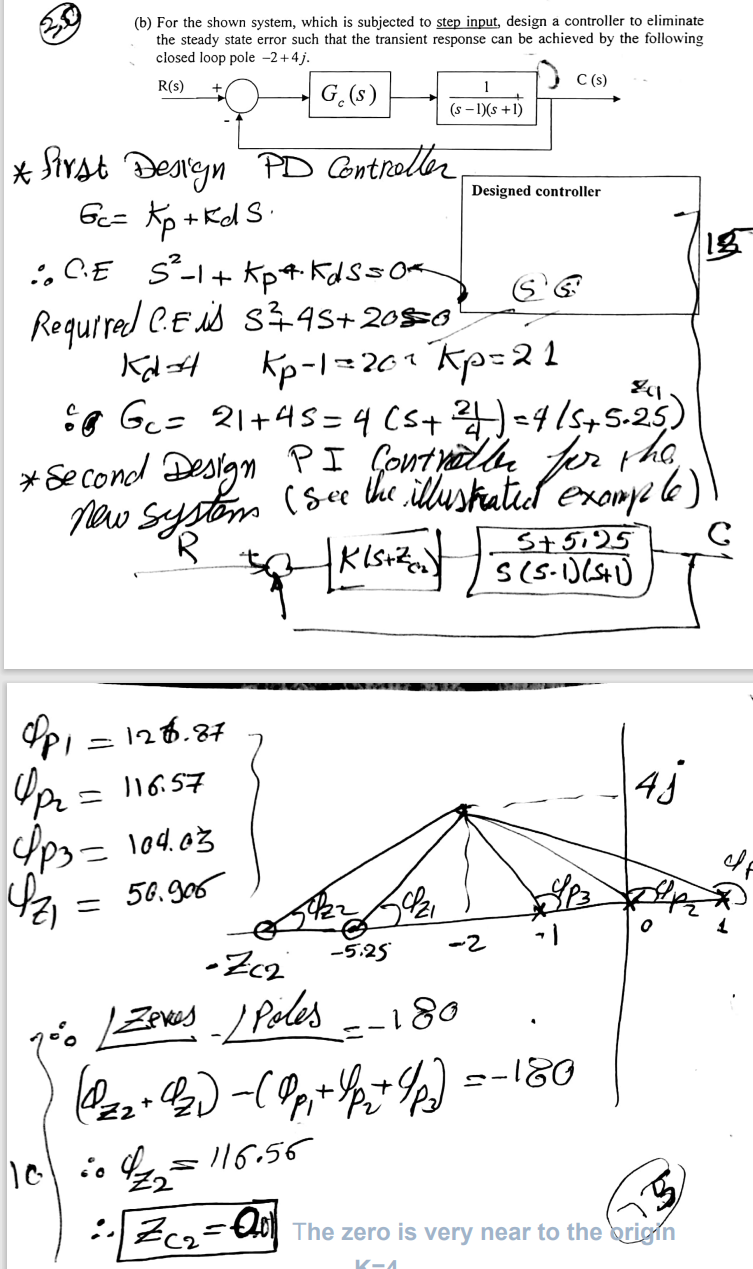 (b) For the shown system, which is subjected to step input, design a controller to eliminate
the steady state error such that the transient response can be achieved by the following
closed loop pole −2+4j.
R(s) + G_c(s) 1 C (s)
(s−1)(s+1)
-
* First Design PD Controller
Designed controller
Gc= Kp+Kd S.
∴ C.E S²-1+Kp+KdS=0
Required C.E is S²+4S+20=0
Kd=4 Kp-1=20, Kp=21
∴ Gc= 21+4S= 4(S+21/4)=4(S+5.25)
Zc1
* Second Design PI Controller for the
new system (See the illustrated example)
R + K(S+Zc2) S+5.25 C
S(S-1)(S+1)
φP1 = 126.87
φP2 = 116.57
φP3 = 104.03
φZ1 = 50.906
4j
φZ2 φZ1 φP3 φP2
-Zc2 -5.25 -2 -1 0 1
∴ /Zeros - /Poles = -180
(φZ2+φZ1)-(φP1+φP2+φP3) = -180
10 ∴ φZ2 = 116.56
∴ Zc2= 0.01 The zero is very near to the origin
K=4